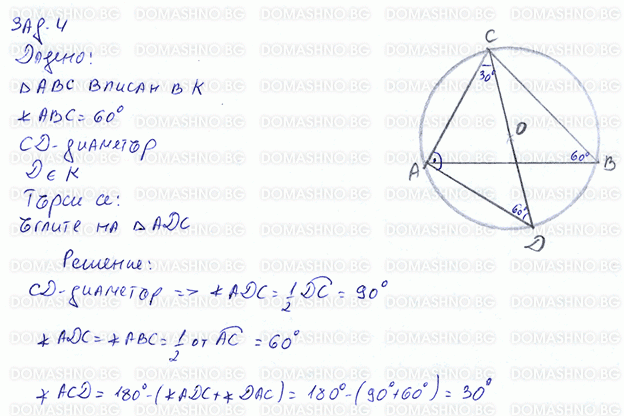 Зад. 4
Дадено:
△ABC вписан в K
∢ABC = 60°
CD - диаметър
D ∈ K
Търси се:
Ъглите на △ADC
Решение:
CD - диаметър => ∢ADC = 1/2 DC = 90°
∢ADC = ∢ABC = 1/2 от AC = 60°
∢ACD = 180° - (∢ADC + ∢DAC) = 180° - (90° + 60°) = 30°
C
30°
O
A
60°
B
60°
D
DOMASHNO.BG